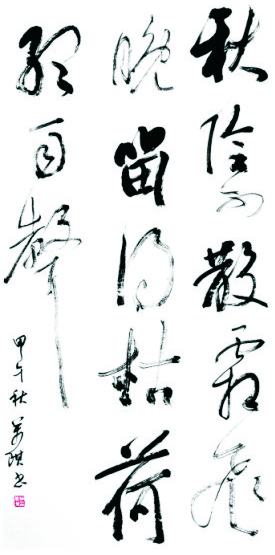 秋阴不散霜飞
晚留得枯荷
听雨声
甲午秋 万琪书